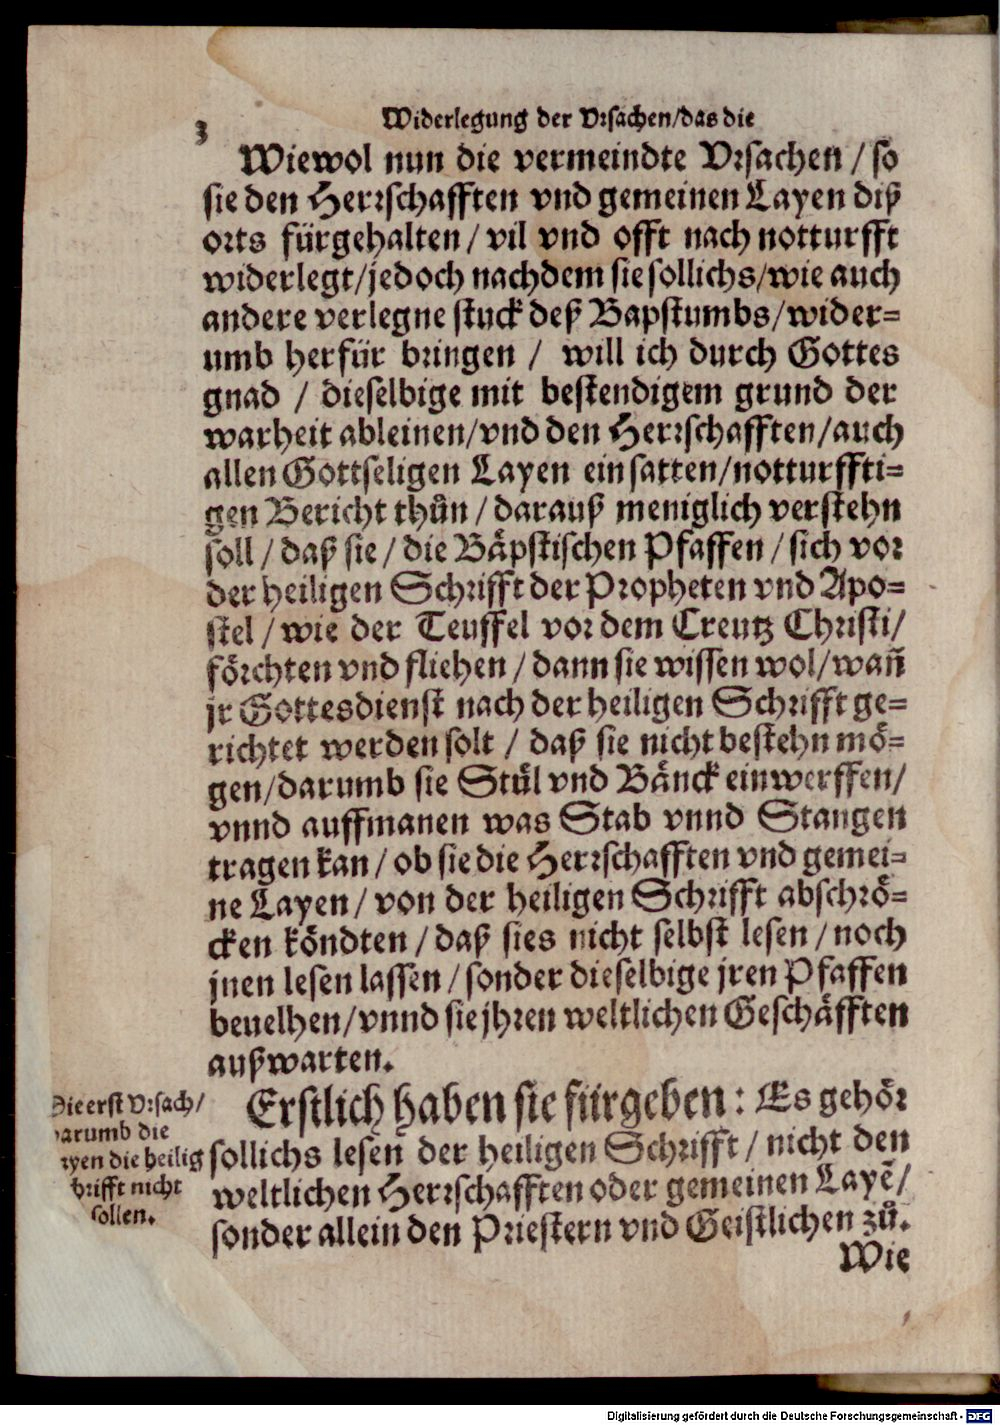 3 Widerlegung der Vrsachen/das die
Wiewol nun die vermeindte Vrsachen / so
sie den Herrschafften vnd gemeinen Layen diß
orts fürgehalten / vil vnd offt nach notturfft
widerlegt/jedoch nachdem sie sollichs/wie auch
andere verlegne stuck deß Bapstumbs/wider=
umb herfür bringen / will ich durch Gottes
gnad / dieselbige mit bestendigem grund der
warheit ableinen/vnd den Herrschafften/auch
allen Gottseligen Layen ein satten/notturffti=
gen Bericht thůn / darauß meniglich verstehn
soll / daß sie / die Bäpstischen Pfaffen / sich vor
der heiligen Schrifft der Propheten vnd Apo=
stel / wie der Teuffel vor dem Creutz Christi/
förchten vnd fliehen / dann sie wissen wol/wañ
jr Gottesdienst nach der heiligen Schrifft ge=
richtet werden solt / daß sie nicht bestehn mö=
gen/darumb sie Stül vnd Bänck einwerffen/
vnnd auffmanen was Stab vnnd Stangen
tragen kan / ob sie die Herrschafften vnd gemei=
ne Layen / von der heiligen Schrifft abschrö=
cken köndten / daß sies nicht selbst lesen / noch
jnen lesen lassen / sonder dieselbige jren Pfaffen
beuelhen/vnnd sie jhren weltlichen Geschäfften
außwarten.
Die erst Vrsach/
warumb die
die heilig
nicht
sollen.
Erstlich haben sie fürgeben: Es gehör
sollichs lesen der heiligen Schrifft / nicht den
weltlichen Herrschafften oder gemeinen Layẽ/
sonder allein den Priestern vnd Geistlichen zů.
Wie
Digitalisierung gefördert durch die Deutsche Forschungsgemeinschaft - DFG